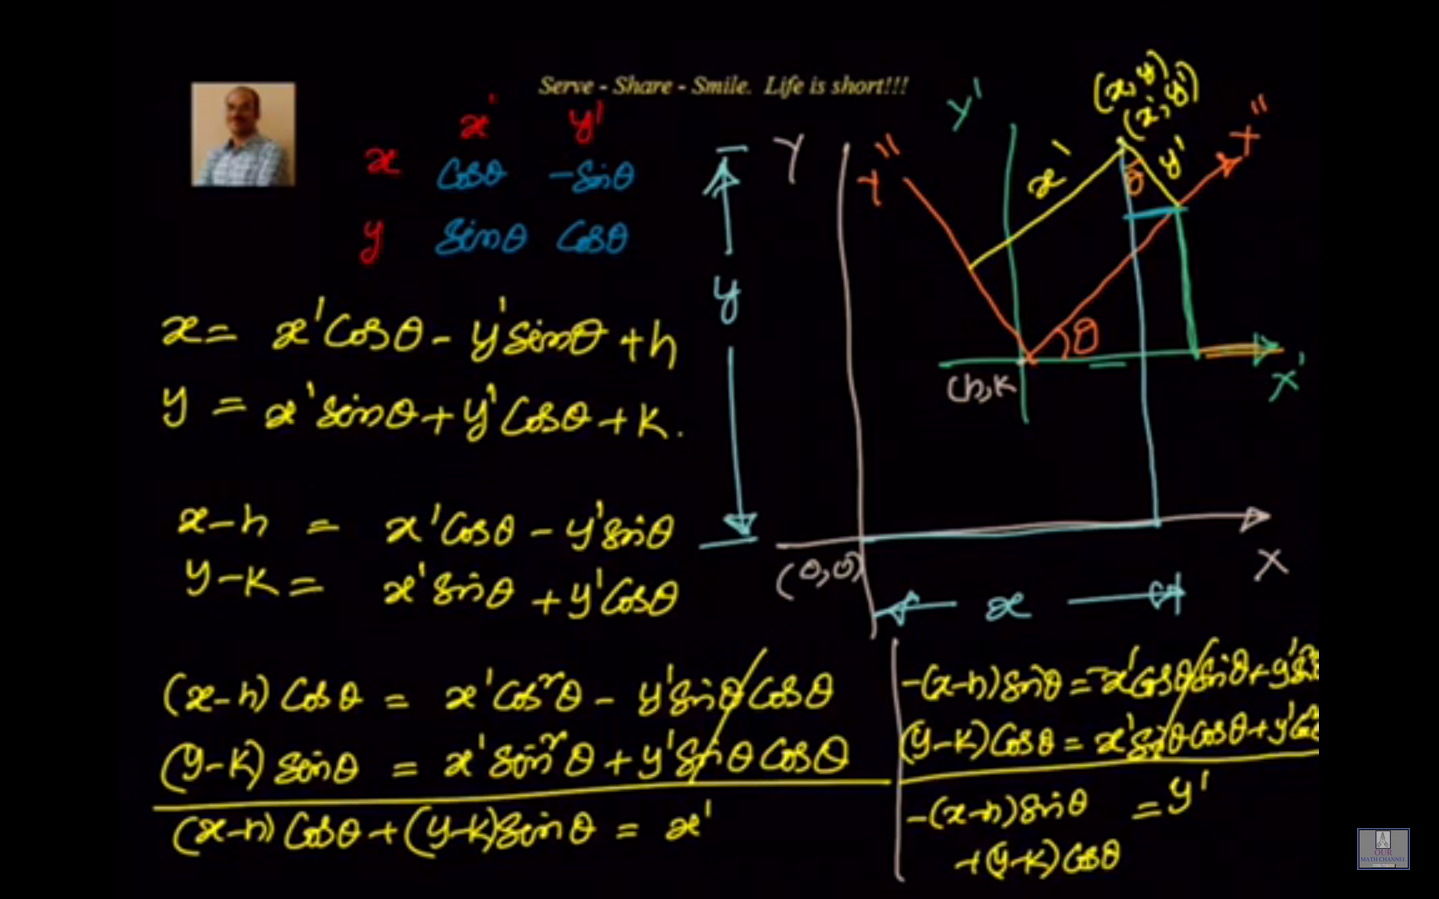 Serve - Share - Smile. Life is short!!!
x' y'
x Cosθ -Sinθ
y Sinθ Cosθ
x = x'Cosθ - y'Sinθ + h
y = x'Sinθ + y'Cosθ + k.
x-h = x'Cosθ - y'Sinθ
y-k = x'Sinθ + y'Cosθ
(x-h) Cosθ = x'Cos²θ - y'SinθCosθ
(y-k) Sinθ = x'Sin²θ + y'SinθCosθ
(x-h) Cosθ + (y-k)Sinθ = x'
-(x-h)Sinθ = -x'CosθSinθ + y'Sin
(y-k)Cosθ = x'SinθCosθ + y'Cos
-(x-h)Sinθ = y'
+(y-k)Cosθ
Y
Y''
Y'
(x,y)
(x',y')
X''
x'
y'
θ
y
θ
(h,k
X'
(0,0)
X
x
OUR
MATH CHANNEL